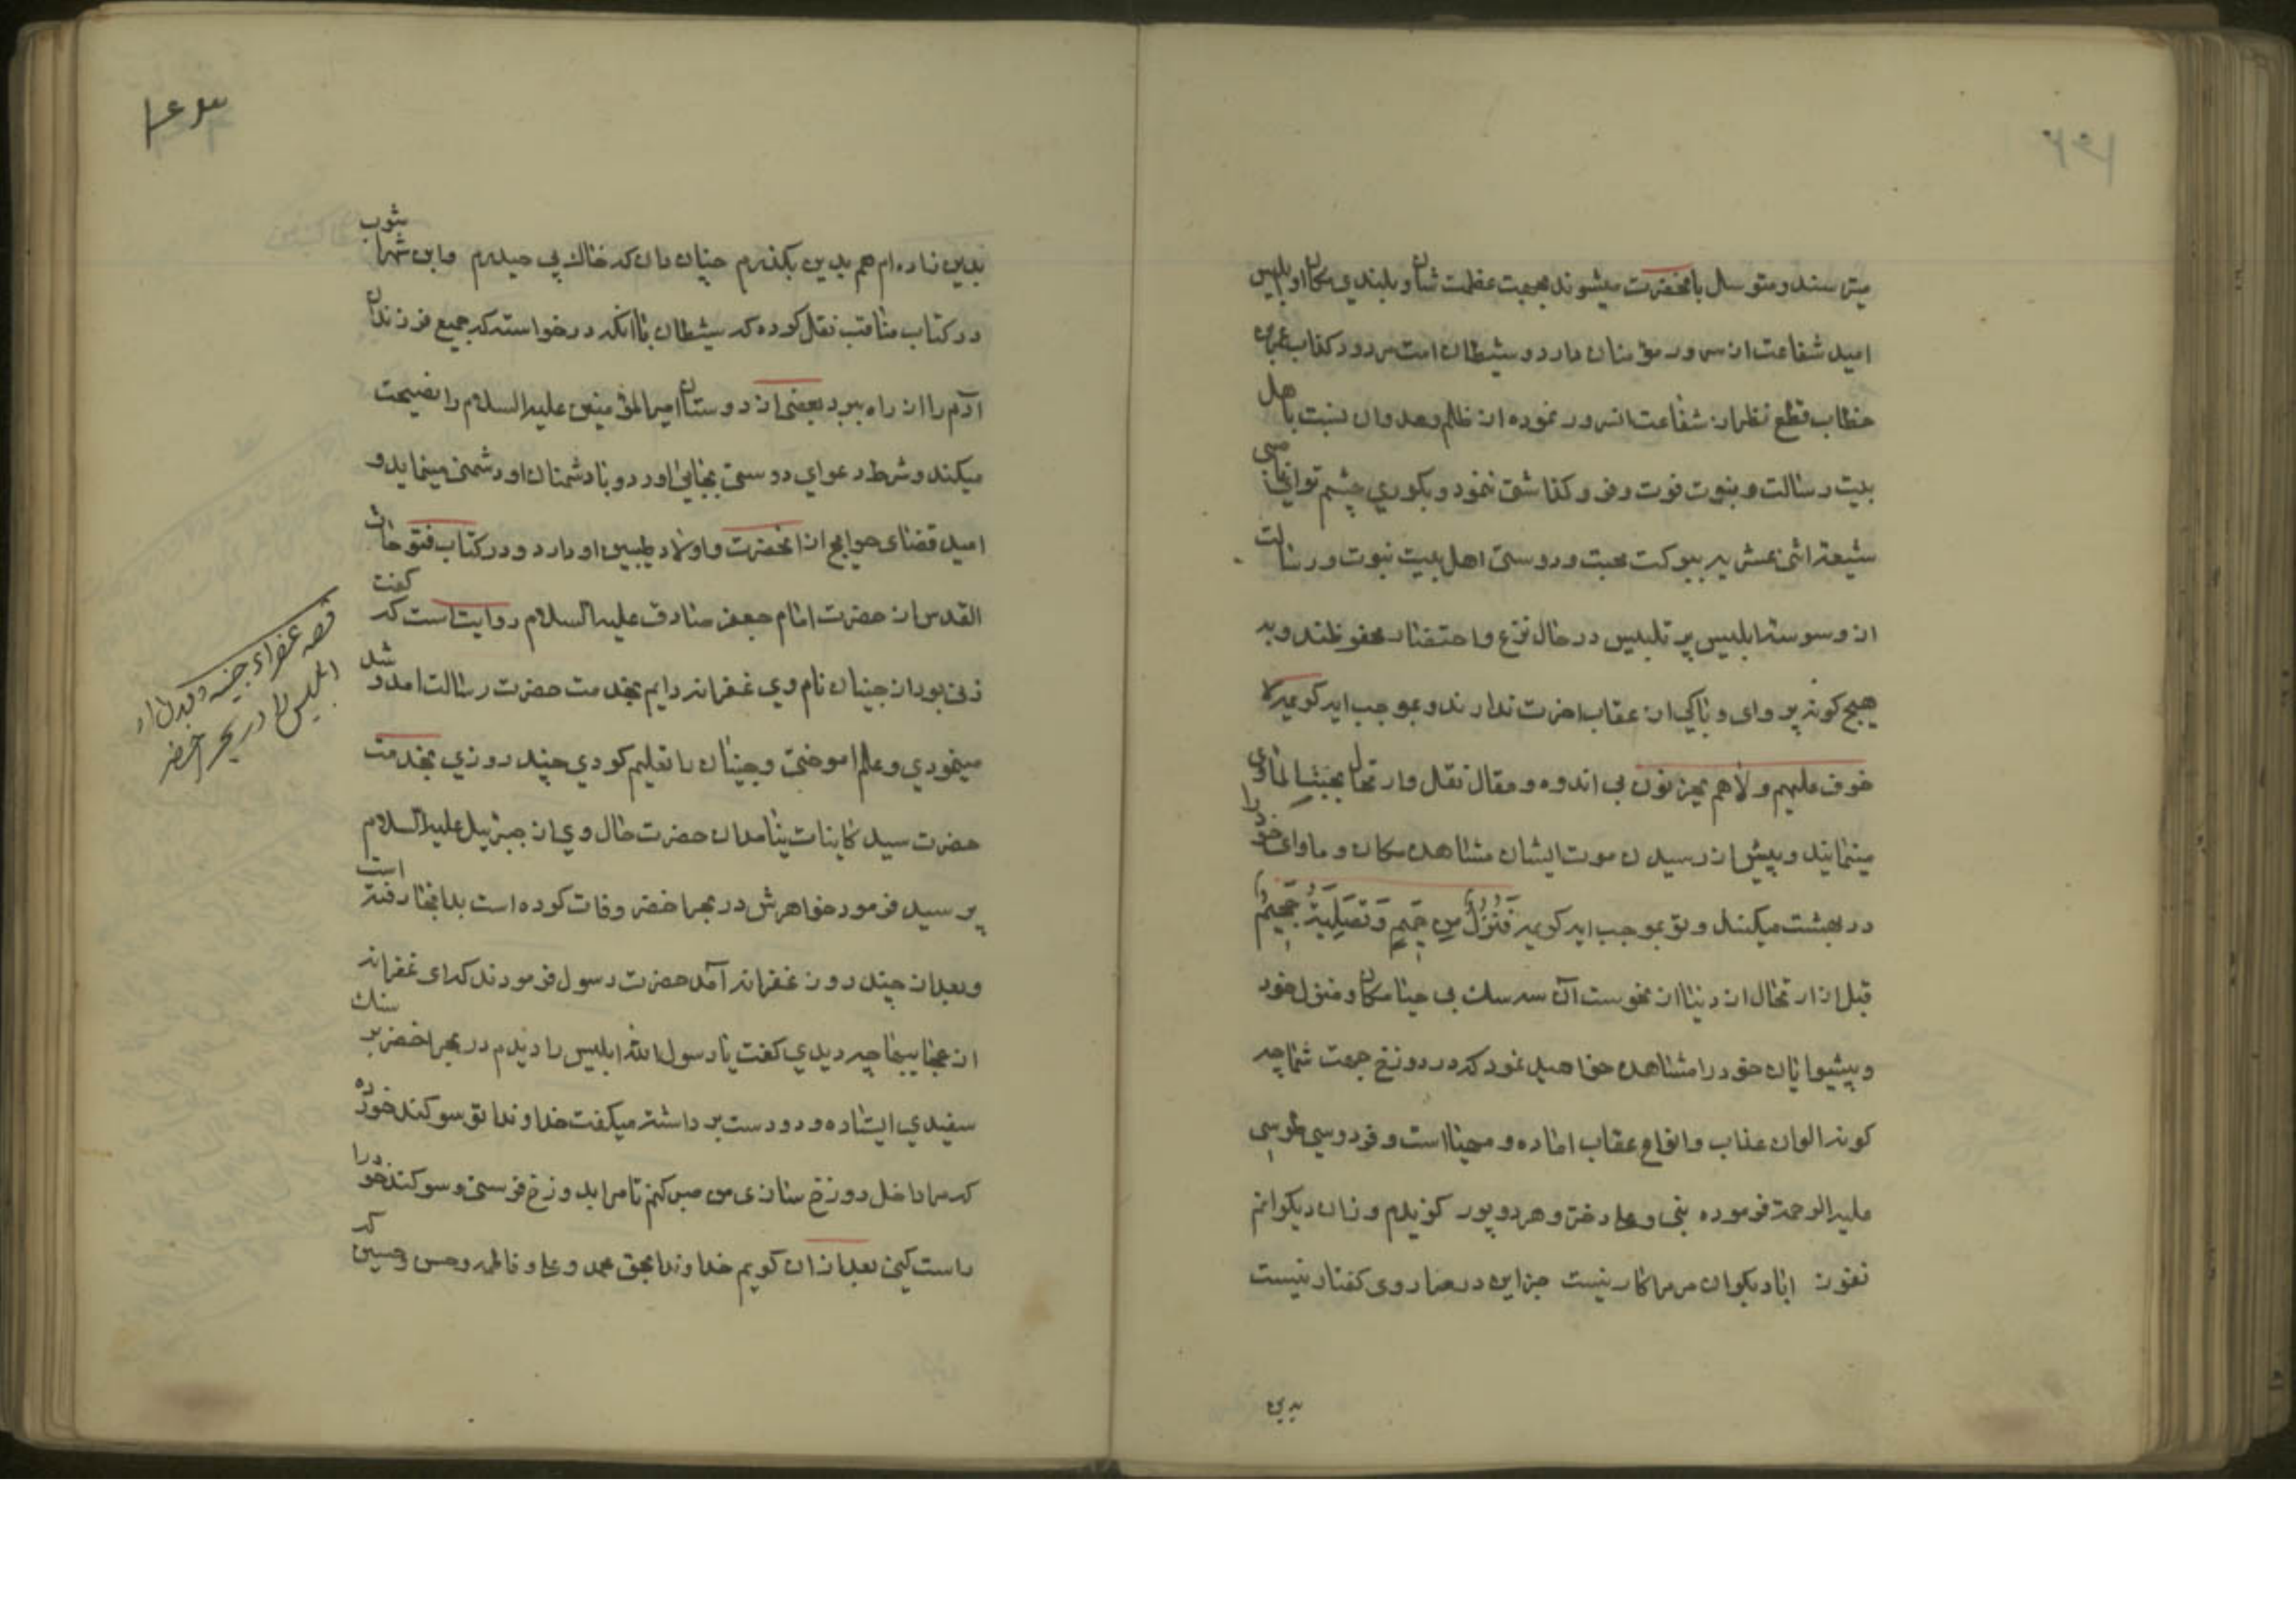 میترسند و متوسل بانحضرت میشوند بجهت عظمت شان و بلندي مکان او بلیس
امید شفاعت ان سرور مؤمنان دارد و شیطان امت مردود کذاب
خطاب قطع نظر از شفاعت انسرور نموده از ظلم و عدوان نسبت باهل
بیت رسالت و نبوت فوت و فروکذاشق ننمود و بکوري چشم تو
شیعه اثنی عشریه ببرکت محبت و دوستی اهل بیت نبوت و رسالت
از وسوسه ابلیس پر تلبیس در حال نزع و احتضار محفوظند و به
هیچ کونه پروای و باکی از عقاب اخرت ندارند و بموجب ایه کریمه لا
خوف علیهم ولا هم یحزنون بی اندوه و مقال نقل و ارتحال بجنة الماوی
مینمایند و پیش از رسیدن موت ایشان مشاهده مکان و ماوای خود را
در بهشت میکنند و تو بموجب ایه کریمه فَنُزُلٌ مِن حَمیمٍ وَتَصلِیَةُ جَحیمٍ
قبل از ارتحال از دنیا از نحوست آن سه سك بی حیا مکان و منزل خود
و پیشوایان خود را مشاهده خواهید نمود که در دوزخ جهت شما چه
کونه الوان عذاب و انواع عقاب اماده و مهیا است و فردوسی طوسی
علیه الرحمة فرموده نبی و علی دختر و هر دو پور کزیدم و زان دیکرانم
نفور ابا دیکران مر مرا کار نیست جز این در مرا روی کفتار نیست
بدین
۱۶۳
بدین زاده ام هم بدین بکذرم چنان دان که خاك پی حیدرم و ابن شهراشوب
در کتاب مناقب نقل کرده که شیطان باانکه درخواسته که جمیع فرزندان
آدم را از راه ببرد بعضی از دوستان امیرالمؤمنین علیه السلام را نصیحت
میکند و شرط دعوای دوستی بجای اورد و با دشمنان او دشمنی مینماید و
امید قضای حوایج از انحضرت و اولاد طیبین او دارد و در کتاب فتوحات
القدس از حضرت امام جعفر صادق علیه السلام روایت است که کفت
زنی بود از جنیان نام وي غفرانه دایم بخدمت حضرت رسالت امد و شد
مینمودي و علم اموختی و جنیان را تعلیم کردي چند روزي بخدمت
حضرت سید کاینات نیامد ان حضرت حال وي از جبرئیل علیه السلام
پرسید فرمود خواهرش در بحر اخضر وفات کرده است بدانجا رفته است
و بعد از چند روز غفرانه آمد حضرت رسول فرمودند که ای غفرانه
از عجایبها چه دیدي کفت یا رسول الله ابلیس را دیدم در بحر اخضر بر سنك
سفیدي ایستاده و دو دست برداشته میکفت خداوندا تو سوکند خورده
که مرا داخل دوزخ سازی من صبر کنم تا مرا بدوزخ فرستی و سوکند خود را
راست کنی بعد از ان کویم خداوندا بحق محمد و علی و فاطمه و حسن و حسین که
قصه عفراء جنیه و دیدن او
ابلیس را در بحر اخضر